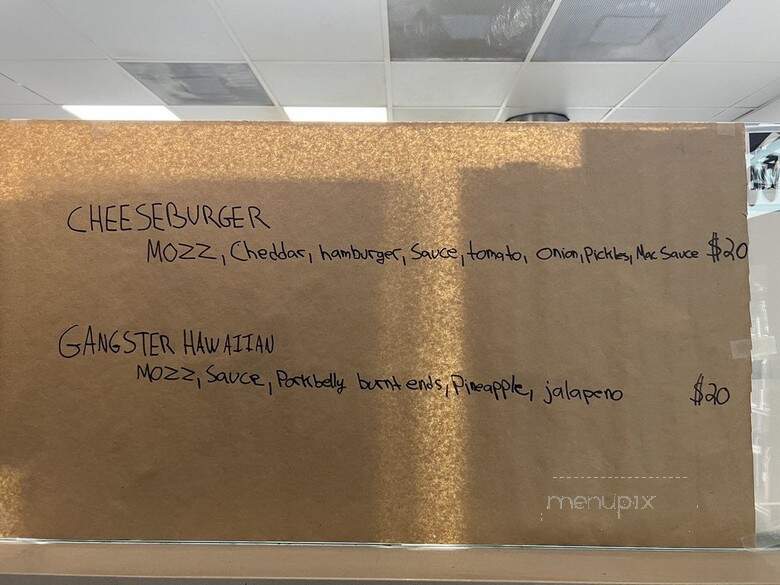 CHEESEBURGER
MOZZ, Cheddar, hamburger, Sauce, tomato, onion, Pickles, Mac Sauce $20
GANGSTER HAWAIIAN
MOZZ, Sauce, Porkbelly burnt ends, Pineapple, jalapeno $20
menupix